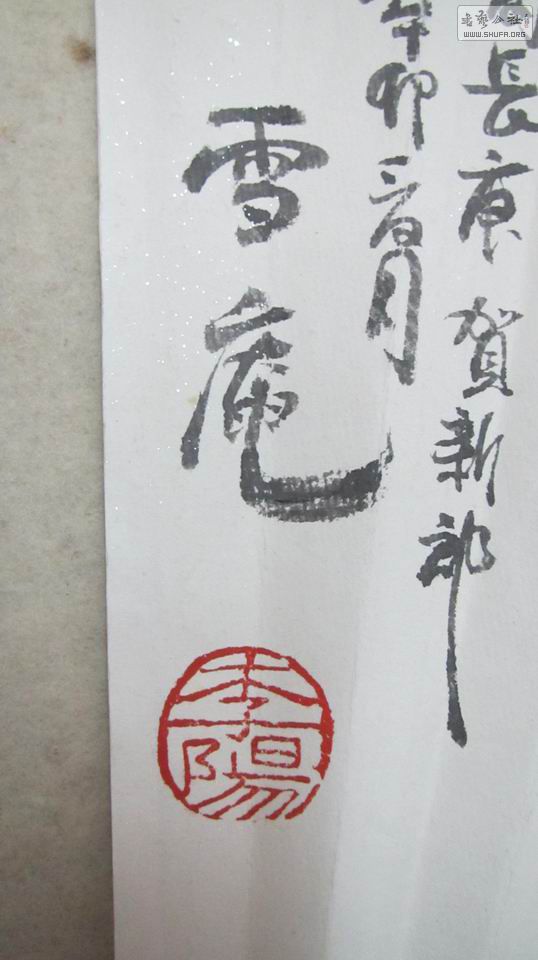 長庚賀新郎
辛卯春月
雪庵
李陽
書藝公社
WWW.SHUFA.ORG